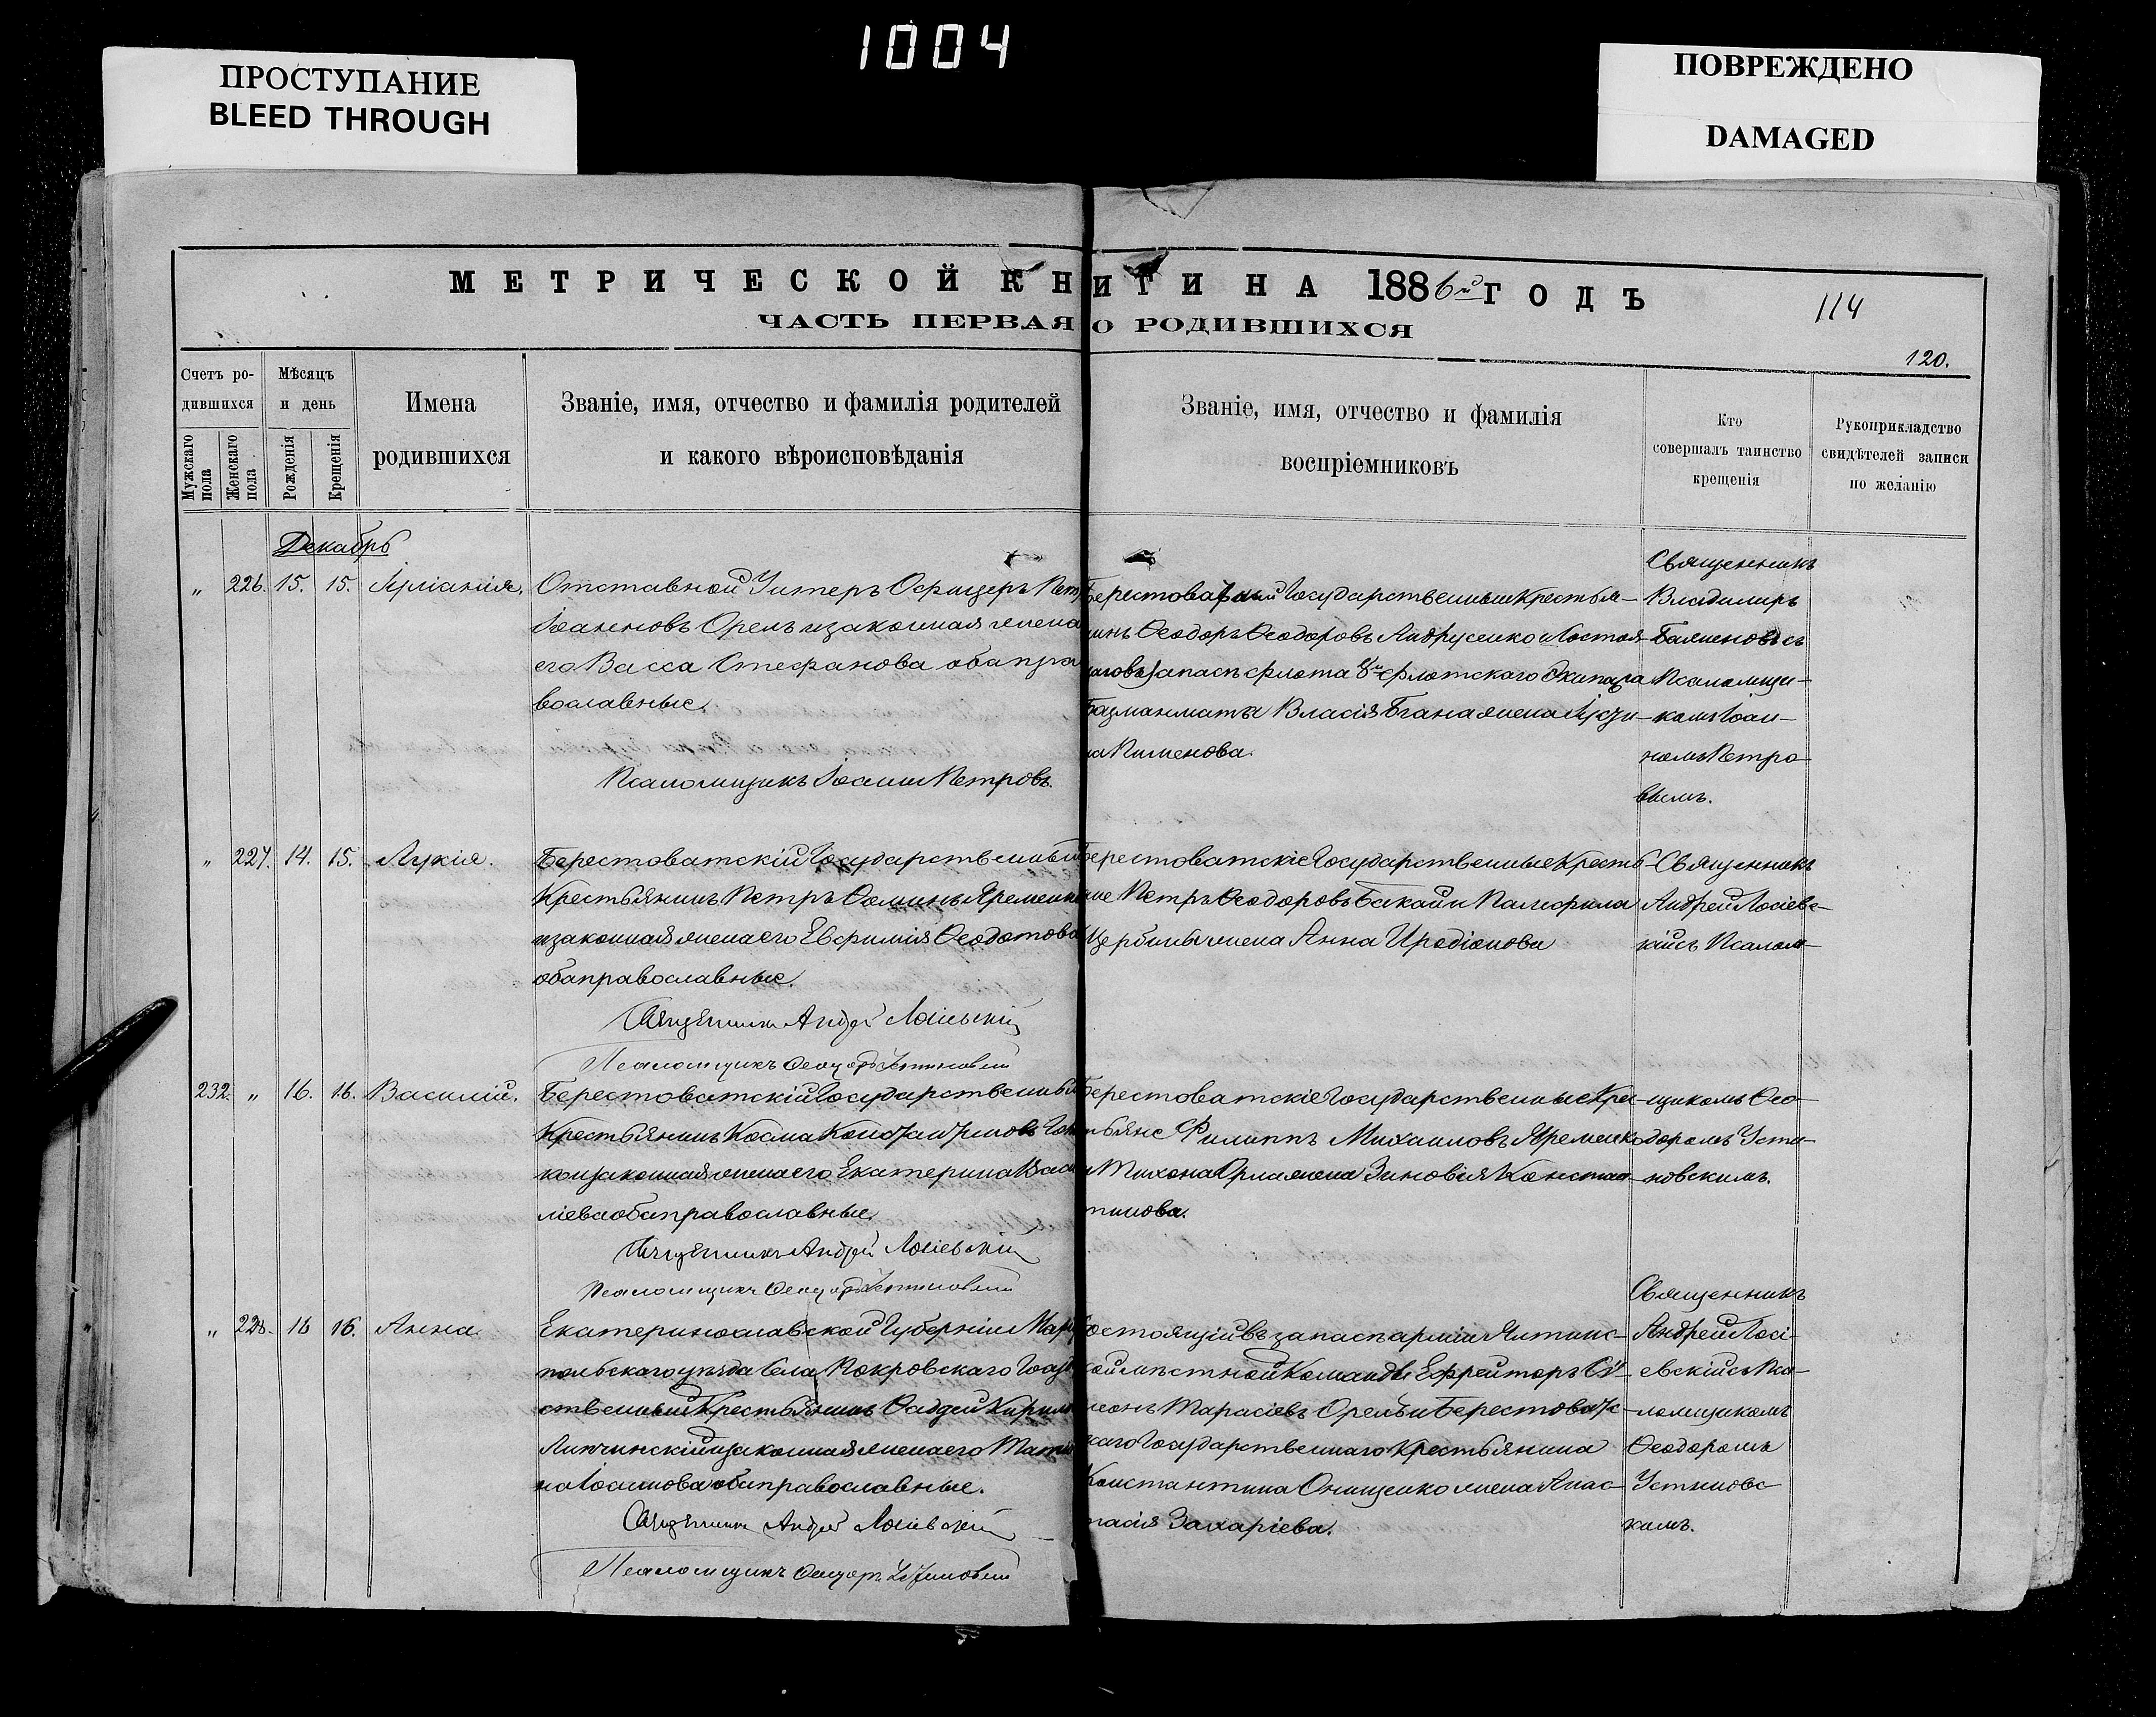 1004
ПРОСТУПАНИЕ
BLEED THROUGH
ПОВРЕЖДЕНО
DAMAGED
МЕТРИЧЕСКОЙ КНИГИ НА 1886й ГОДЪ
114
ЧАСТЬ ПЕРВАЯ О РОДИВШИХСЯ
120.
Счетъ ро-
дившихся
Мужскаго пола
Женскаго пола
Мѣсяцъ
и день
Рожденія
Крещенія
Имена
родившихся
Званіе, имя, отчество и фамилія родителей
и какого вѣроисповѣданія
Званіе, имя, отчество и фамилія
воспріемниковъ
Кто
совершалъ таинство
крещенія
Рукоприкладство
свидѣтелей записи
по желанію
Декабрь
" 226. 15. 15. Іуліанія.
Отставной Унтеръ Офицеръ Пет
Іоанновъ Орелъ и законная жена
его Васса Стефанова оба пра
вославные.
Псаломщикъ Іоаннъ Петровъ.
Государственный Крестья-
нинъ Ѳеодоръ Ѳеодоровъ Андрусенко и
запасѣ флота 8го флотскаго Экипажа
Власія жена
на Пименова.
Священникъ
Владимиръ
съ
Псаломщи-
комъ Іоан-
номъ Петро-
вымъ.
" 227. 14. 15. Лукія.
Берестоватскій Государственный
Крестьянинъ Петръ Ѳоминъ Яременк
и законная жена его Евфимія Ѳеодотова
оба православные.
Священникъ Андрей Лосіевскій
Псаломщикъ Ѳеодоръ Устиновскій
Берестоватскіе Государственные Кресть-
яне Петръ Ѳеодоровъ Бакай и Памфила
Щербины жена Анна Иродіонова
Священникъ
Андрей Лосіевс-
кій съ Псалом-
232. " 16. 16. Василій.
Берестоватскій Государственный
Крестьянинъ Косма Константиновъ Гон
ко и законная жена его Екатерина Васи
ліева оба православные.
Священникъ Андрей Лосіевскій
Псаломщикъ Ѳеодоръ Устиновскій
Берестоватскіе Государственные Крес-
тьяне Филиппъ Михаиловъ Яременко
и Тихона Орла жена Зиновія Констан-
тинова.
щикомъ Ѳео-
доромъ Усти-
новскимъ.
" 228. 16 16. Анна.
Екатеринославской Губерніи Маріу
польскаго уѣзда Села Покровскаго Госуд
ственный Крестьянинъ Ѳаддей Кирил
Липчинскій и законная жена его Татія
на Іоаннова оба православные.
Священникъ Андрей Лосіевскій
Псаломщикъ Ѳеодоръ Устиновскій
Состоящій въ запасѣ арміи Ялтинс-
кой мѣстной Команды Ефрейторъ Си-
меонъ Тарасіевъ Орелъ и Берестоватс-
каго Государственнаго Крестьянина
Константина Онищенко жена Анас-
тасія Захаріева.
Священникъ
Андрей Лосі-
евскій съ Пса-
ломщикомъ
Ѳеодоромъ
Устиновс-
кимъ.